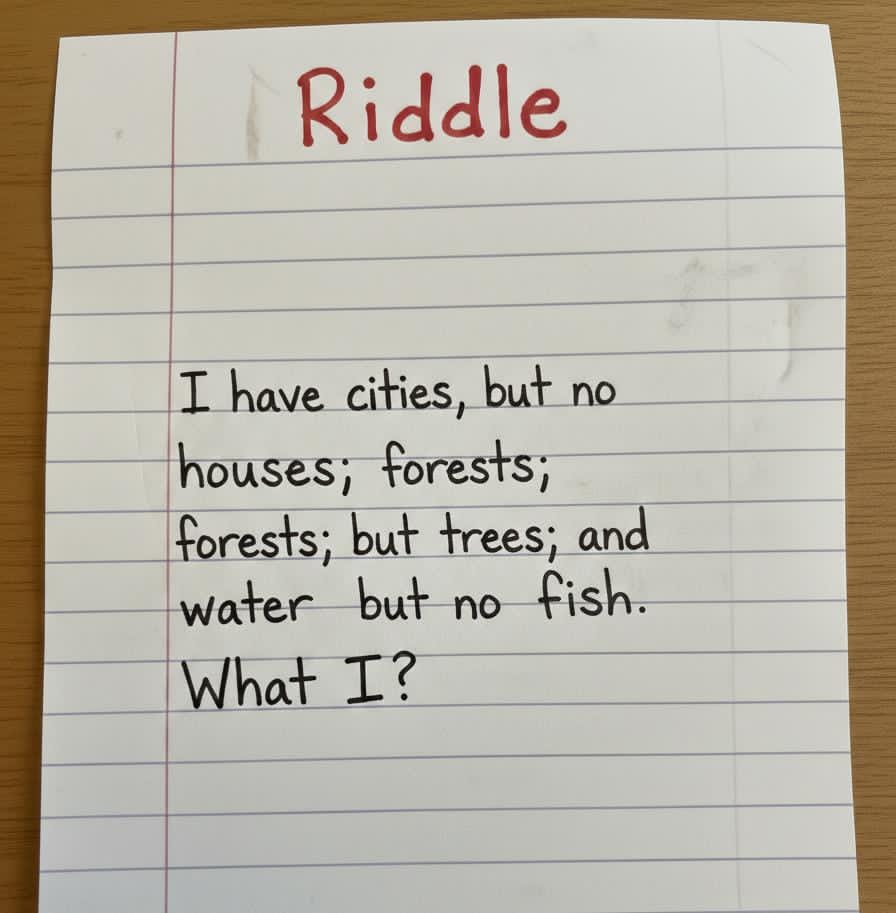 Riddle
I have cities, but no
houses; forests;
forests; but trees; and
water but no fish.
What I?